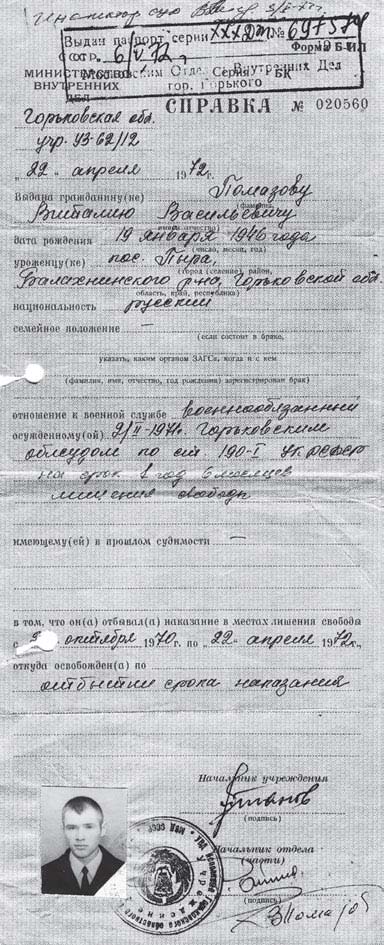 Выдан паспорт серии XXX № 697574
6/V 72 г.
Форма Б
МИНИСТЕРСТВО
ВНУТРЕННИХ
ДЕЛ
Отд. Внутренних Дел
гор. Горького
Серия БК
СПРАВКА № 020560
Горьковская обл.
учр. УЗ-62/12
„22" апреля 1972г.
Выдана гражданину(ке) Помазову
(фамилия,
Виталию Васильевичу
имя, отчество)
дата рождения 19 января 1946 года
(число, месяц, год)
уроженцу(ке) пос. Пыра,
(город (селение), район,
Балахнинского р-на, Горьковской обл.
область, край, республика)
национальность русский
семейное положение —
(если состоит в браке,
указать, каким органом ЗАГСа, когда и с кем
(фамилия, имя, отчество, год рождения) зарегистрирован брак)
отношение к военной службе военнообязанный
осужденному(ой) 9/II-1971г. Горьковским
облсудом по ст. 190-I УК РСФСР
на срок 1 год 6 месяцев
лишения свободы
имеющему(ей) в прошлом судимости —
в том, что он(а) отбывал(а) наказание в местах лишения свободы
с октября 1970 г. по „22" апреля 1972г.,
откуда освобожден(а) по
отбытии срока наказания
Начальник учреждения
(подпись)
Начальник отдела
(части)
(подпись)